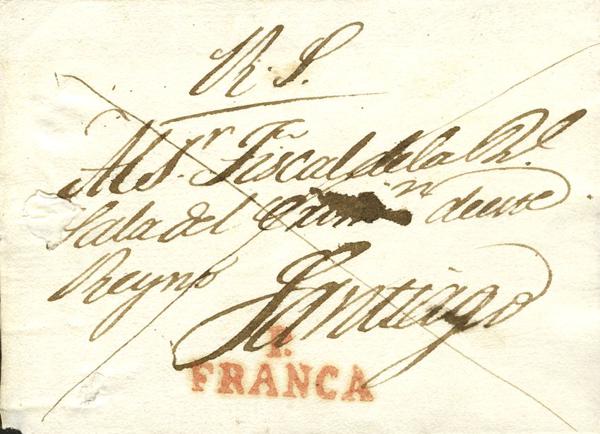 R. S.
Al Sr. Fiscal de la Rl.
Sala del Crimn de este
Reyno
Santiago
P.
FRANCA